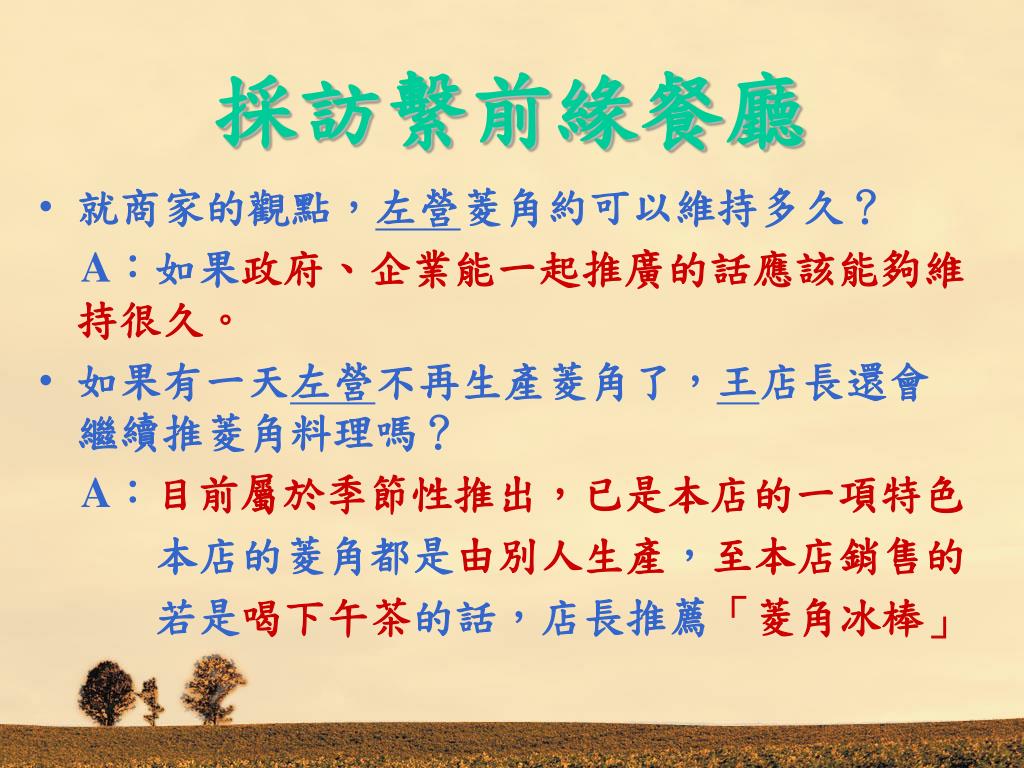 採訪繫前緣餐廳
• 就商家的觀點，左營菱角約可以維持多久？
A：如果政府、企業能一起推廣的話應該能夠維
持很久。
• 如果有一天左營不再生產菱角了，王店長還會
繼續推菱角料理嗎？
A：目前屬於季節性推出，已是本店的一項特色
本店的菱角都是由別人生產，至本店銷售的
若是喝下午茶的話，店長推薦「菱角冰棒」